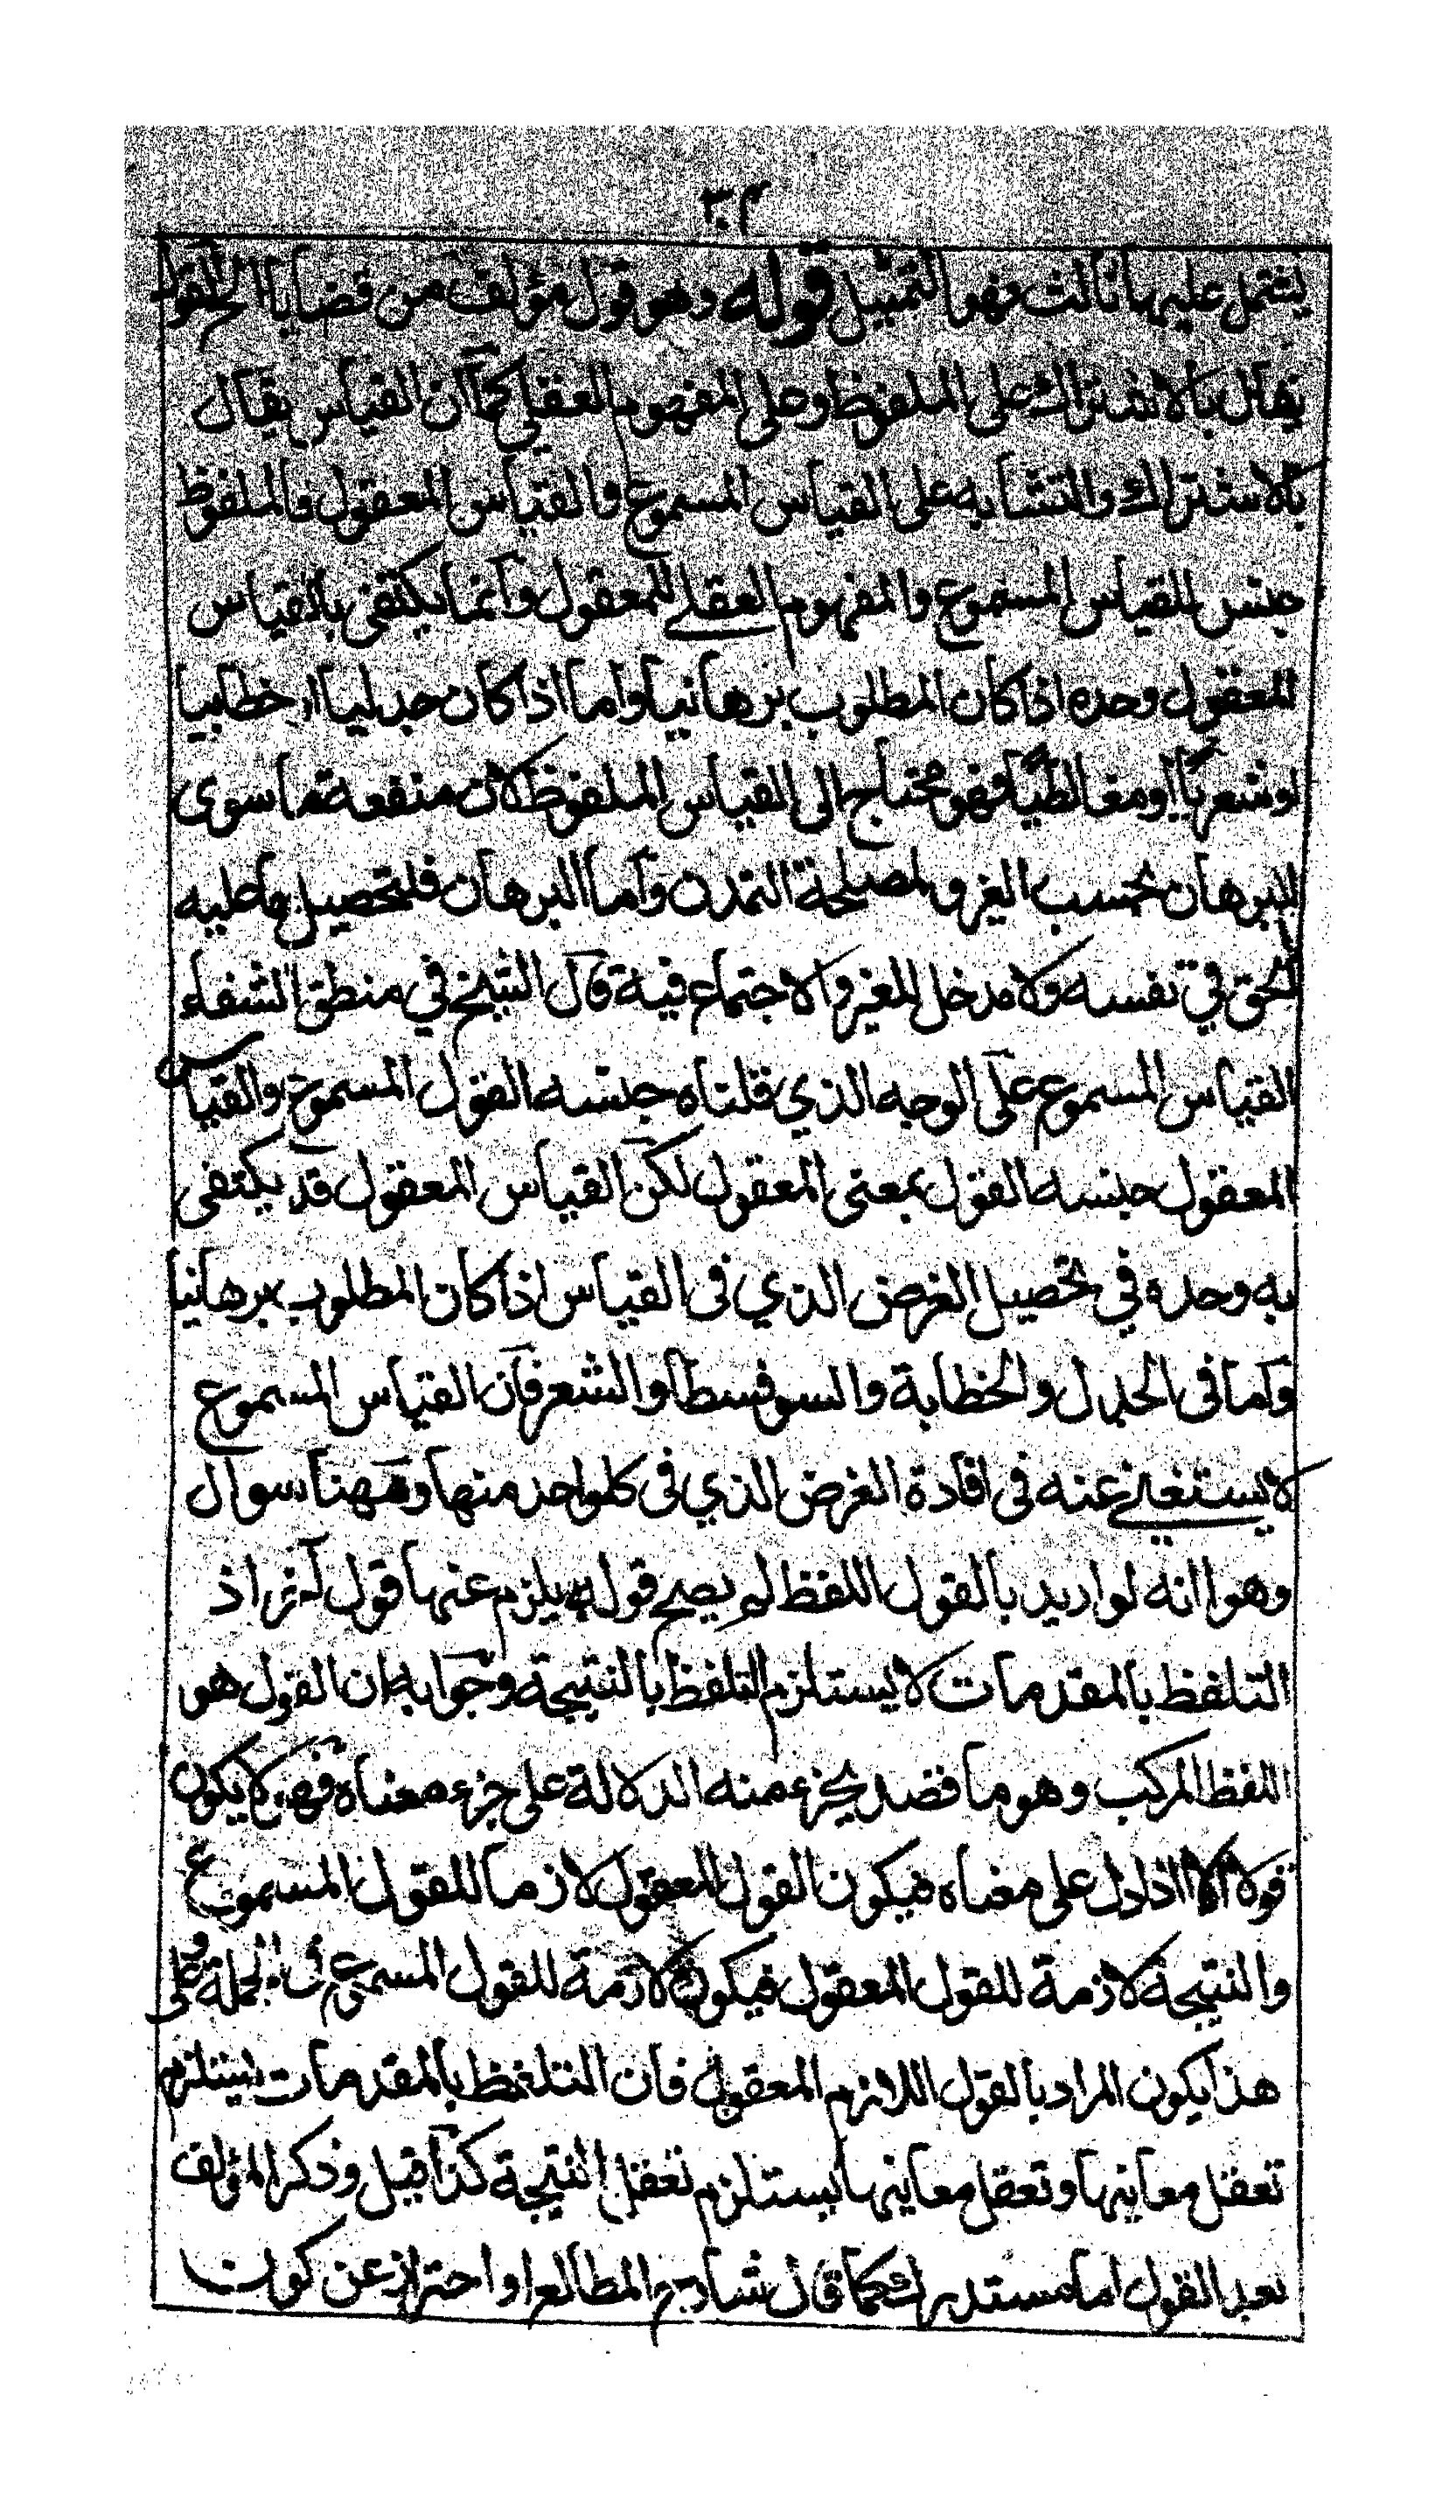 ٣٠٢
يشتمل عليهما ثالث فهو التمثيل قوله وهو قول مؤلف من قضايا الخ القول
يقال بالاشتراك على الملفوظ وعلى المفهوم العقلي كما ان القياس يقال
بالاشتراك والتشابه على القياس المسموع والقياس المعقول والملفوظ
جنس للقياس المسموع والمفهوم العقلے للمعقول وانما يكتفى بالقياس
المعقول وحده اذا كان المطلوب برهانيا واما اذا كان جدليا او خطابيا
او شعريا او مغالطيا فهو محتاج الى القياس الملفوظ لان منفعة ما سوى
البرهان بحسب الغير ولمصلحة التمدن واما البرهان فلتحصيل ما عليه
الحق في نفسه ولا مدخل للغير والاجتماع فيه قال الشيخ في منطق الشفاء
القياس المسموع على الوجه الذي قلناه جنسه القول المسموع والقياس
المعقول جنسه القول بمعنى المعقول لكن القياس المعقول قد يكتفى
به وحده في تحصيل الغرض الذي فى القياس اذا كان المطلوب برهانيا
واما فى الجدل والخطابة والسوفسطا والشعر فان القياس المسموع
لا يستغنے عنه فى افادة الغرض الذي فى كل واحد منها وههنا سوال
وهو انه لو اريد بالقول اللفظ لم يصح قوله يلزم عنها قول آخر اذ
التلفظ بالمقدمات لا يستلزم التلفظ بالنتيجة وجوابه ان القول هو
اللفظ المركب وهو ما قصد بجزء منه الدلالة على جزء معناه فهو لا يكون
قولا الا اذا دل على معناه فيكون القول المعقول لازما للقول المسموع
والنتيجة لازمة للقول المعقول فيكون لازمة للقول المسموع فى الجملة وعلى
هذا يكون المراد بالقول اللازم المعقول فان التلفظ بالمقدمات يستلزم
تعقل معانيها وتعقل معانيها يستلزم تعقل النتيجة كذا قيل وذكر المؤلف
بعد القول اما مستدرك كما قال شارح المطالع او احتراز عن كون